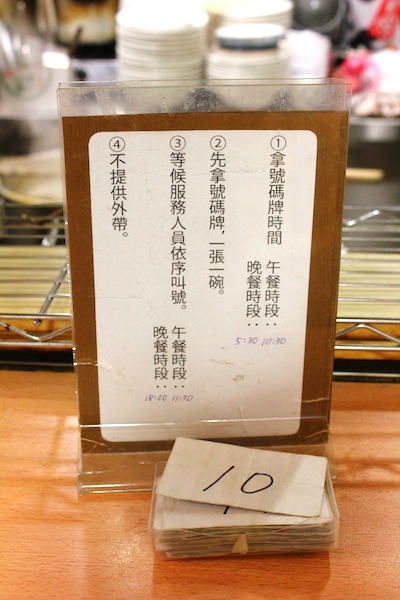 ①拿號碼牌時間
午餐時段：10:30
晚餐時段：5:30
②先拿號碼牌，一張一碗。
③等候服務人員依序叫號。
午餐時段：11:30
晚餐時段：18:00
④不提供外帶。
10